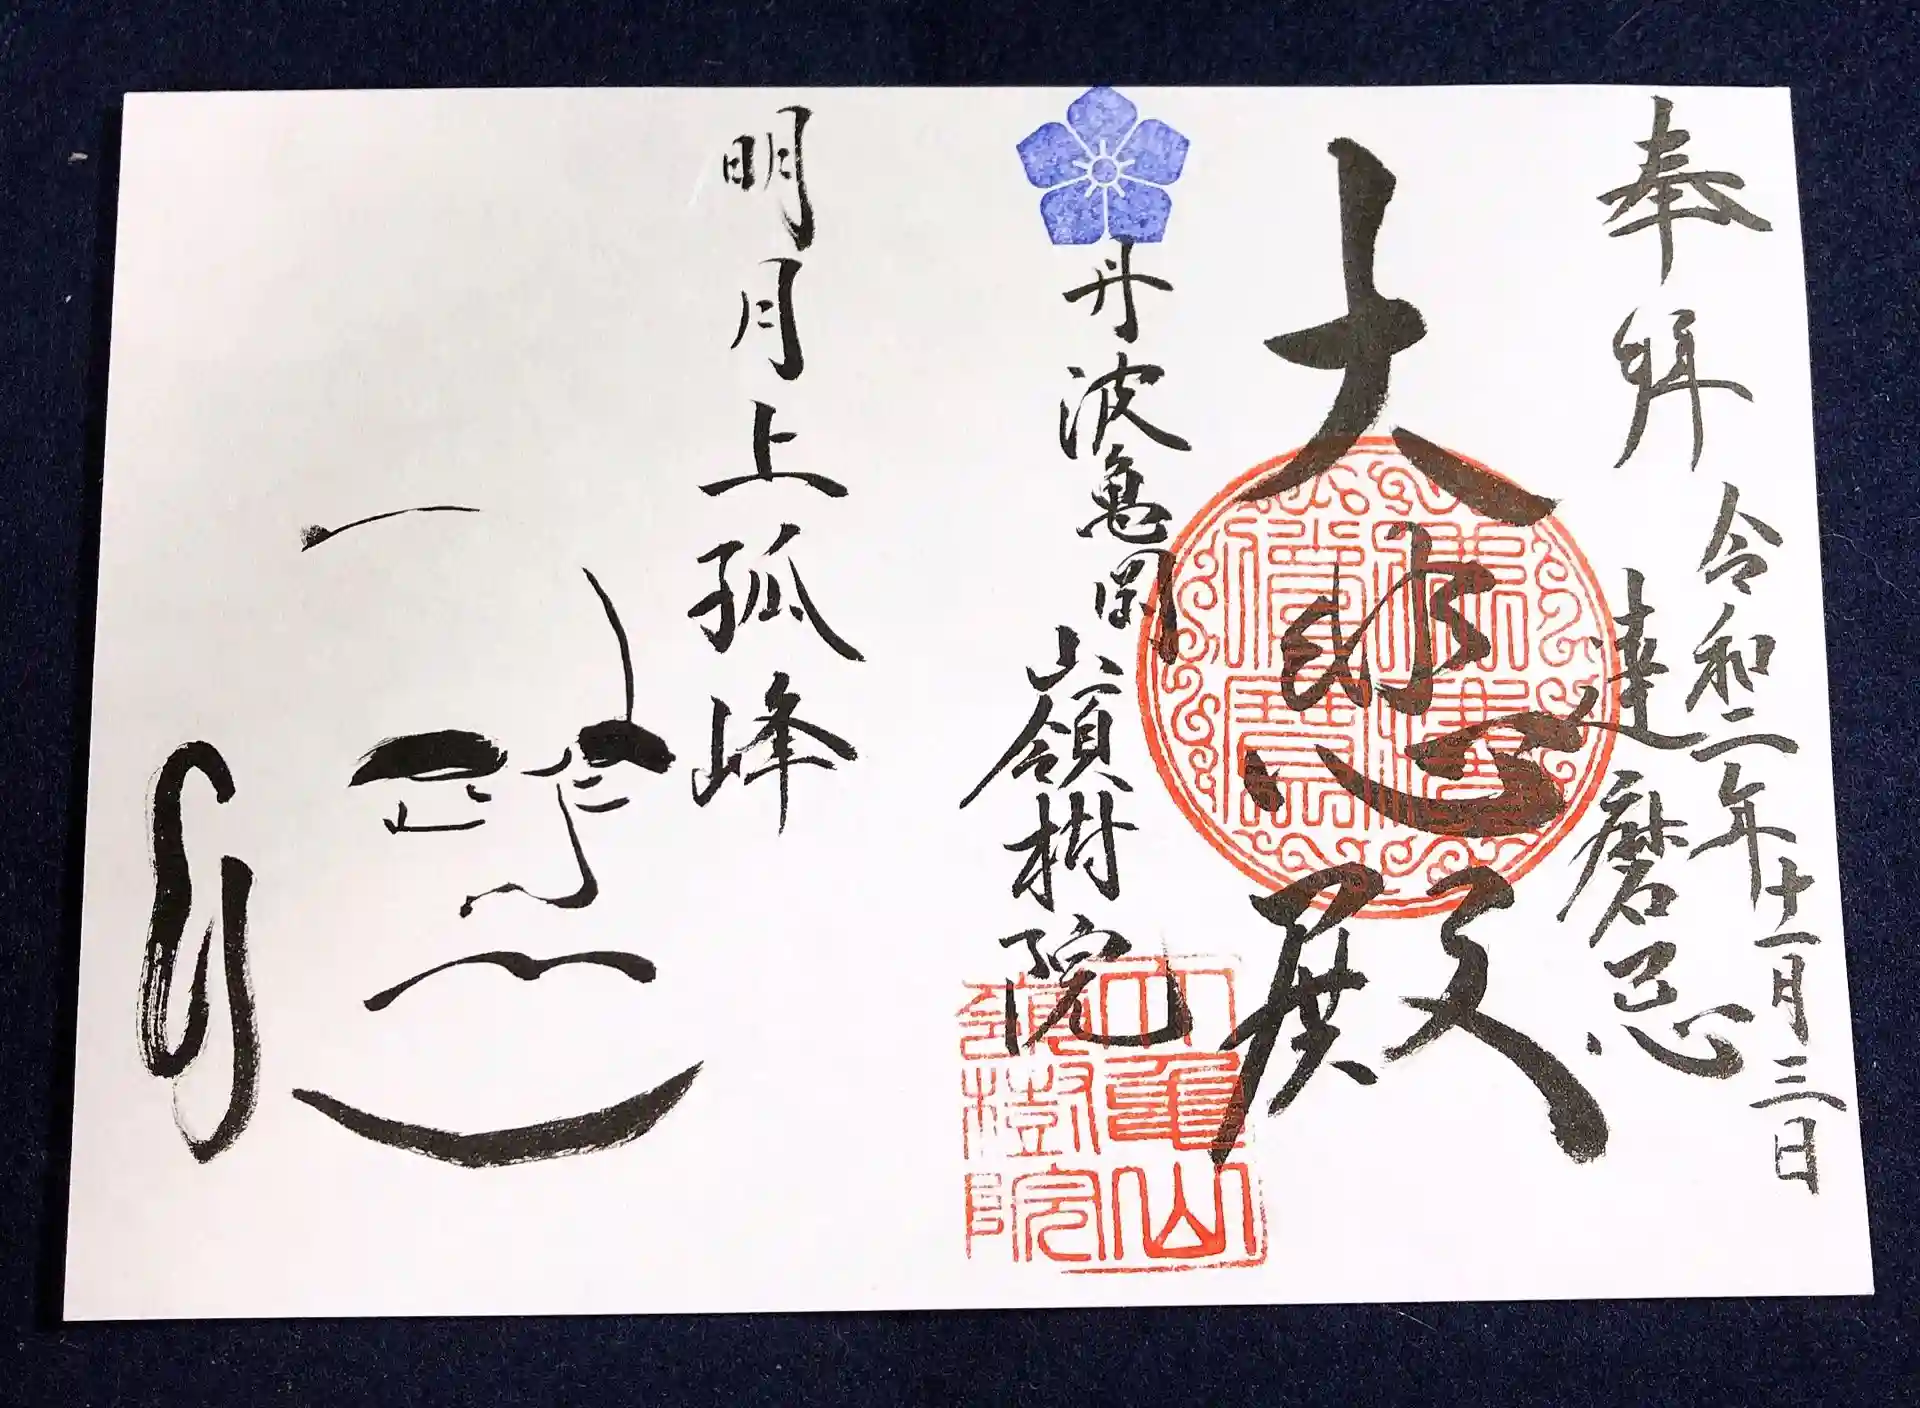 奉拝
令和二年十一月三日
達磨忌
大悲殿
丹波亀岡
山嶺樹院
明月上孤峰
亀山
嶺樹院